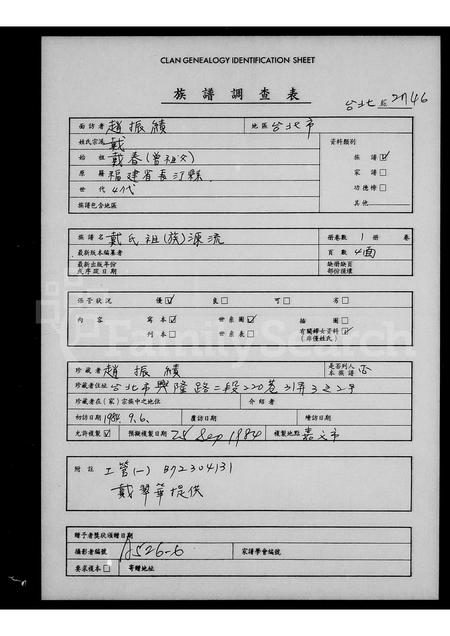 CLAN GENEALOGY IDENTIFICATION SHEET
族譜調查表
台北 2746
面訪者 趙振績 地區 台北市
姓氏宗派 戴 資料類別
始祖 戴春(曾祖父) 族譜 ☑
原籍 福建省長汀縣 家譜 □
世代 4代 功德榜 □
族譜包含地區 其他
族譜名 戴氏祖(族)源流 冊卷數 1 冊 卷
最新版本編纂者 頁數 4面
最新出版年份或序跋日期 缺冊缺頁部份後補
保管狀況 優 ☑ 良 □ 可 □ 劣 □
內容 寫本 ☑ 世系圖 ☑ 插圖 □ 有關婦女資料 ☑ (非僅姓氏)
刊本 □ 世系表 □
珍藏者 趙振績 是否列入本族譜 否
珍藏者住址 台北市興隆路二段220巷31弄3之2号
珍藏者在(家)宗族中之地位 介紹者
初訪日期 1984.9.6. 覆訪日期 續訪日期
允許複製 ☑ 預擬複製日期 25 Sep 1984 複製地點 嘉义市
附註 工管(一) B72304131
戴翠華提供
贈予者獎狀頒贈日期
攝影者編號 A526-6 家譜學會編號
要求複本 □ 寄贈地址
FamilySearch